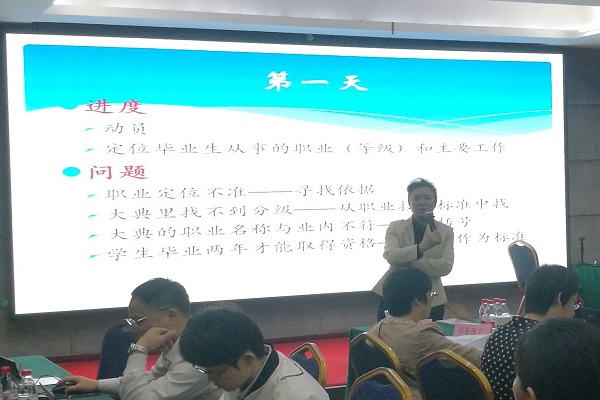 第一天
进度
动员
定位毕业生从事的职业（等级）和主要工作
问题
职业定位不准——寻找依据
大典里找不到分级——从职业技 标准中找
大典的职业名称与业内不符 括号
学生毕业两年才能取得资格 作为标准